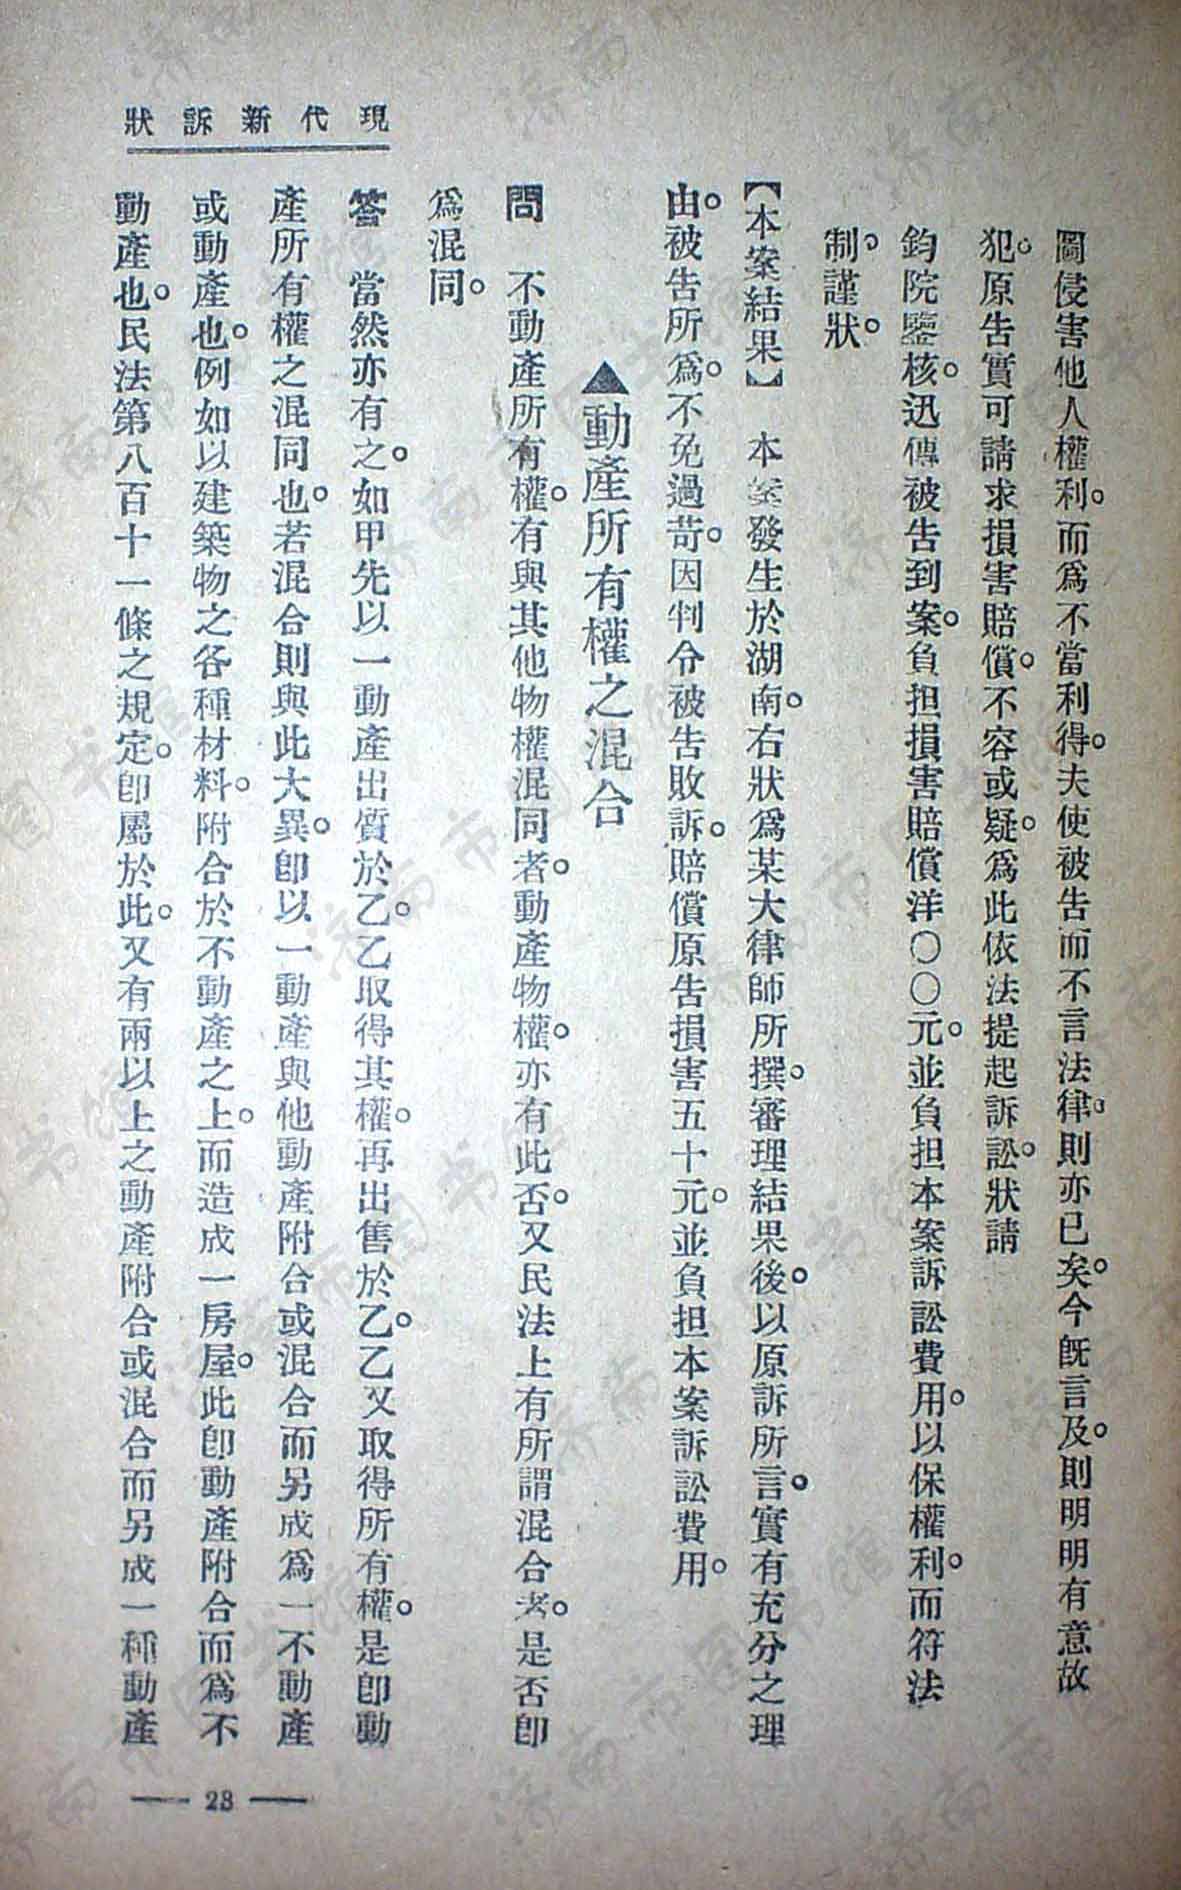 現代新訴狀
圖侵害他人權利。而爲不當利得。夫使被告而不言法律。則亦已矣。今旣言及。則明明有意故
犯。原告實可請求損害賠償。不容或疑。爲此依法提起訴訟。狀請
鈞院鑒核。迅傳被告到案。負担損害賠償洋〇〇元。並負担本案訴訟費用。以保權利。而符法
制。謹狀。
【本案結果】　本案發生於湖南。右狀爲某大律師所撰。審理結果後。以原訴所言。實有充分之理
由。被告所爲。不免過苛。因判令被告敗訴。賠償原告損害五十元。並負担本案訴訟費用。
▲動產所有權之混合
問　不動產所有權。有與其他物權混同者。動產物權。亦有此否。又民法上有所謂混合者。是否卽
爲混同。
答　當然亦有之。如甲先以一動產出質於乙。乙取得其權。再出售於乙。乙又取得所有權。是卽動
產所有權之混同也。若混合則與此大異。卽以一動產與他動產附合或混合而另成爲一不動產
或動產也。例如以建築物之各種材料。附合於不動產之上。而造成一房屋。此卽動產附合而爲不
動產也。民法第八百十一條之規定。卽屬於此。又有兩以上之動產附合或混合而另成一種動產
— 28 —
济南市图书馆